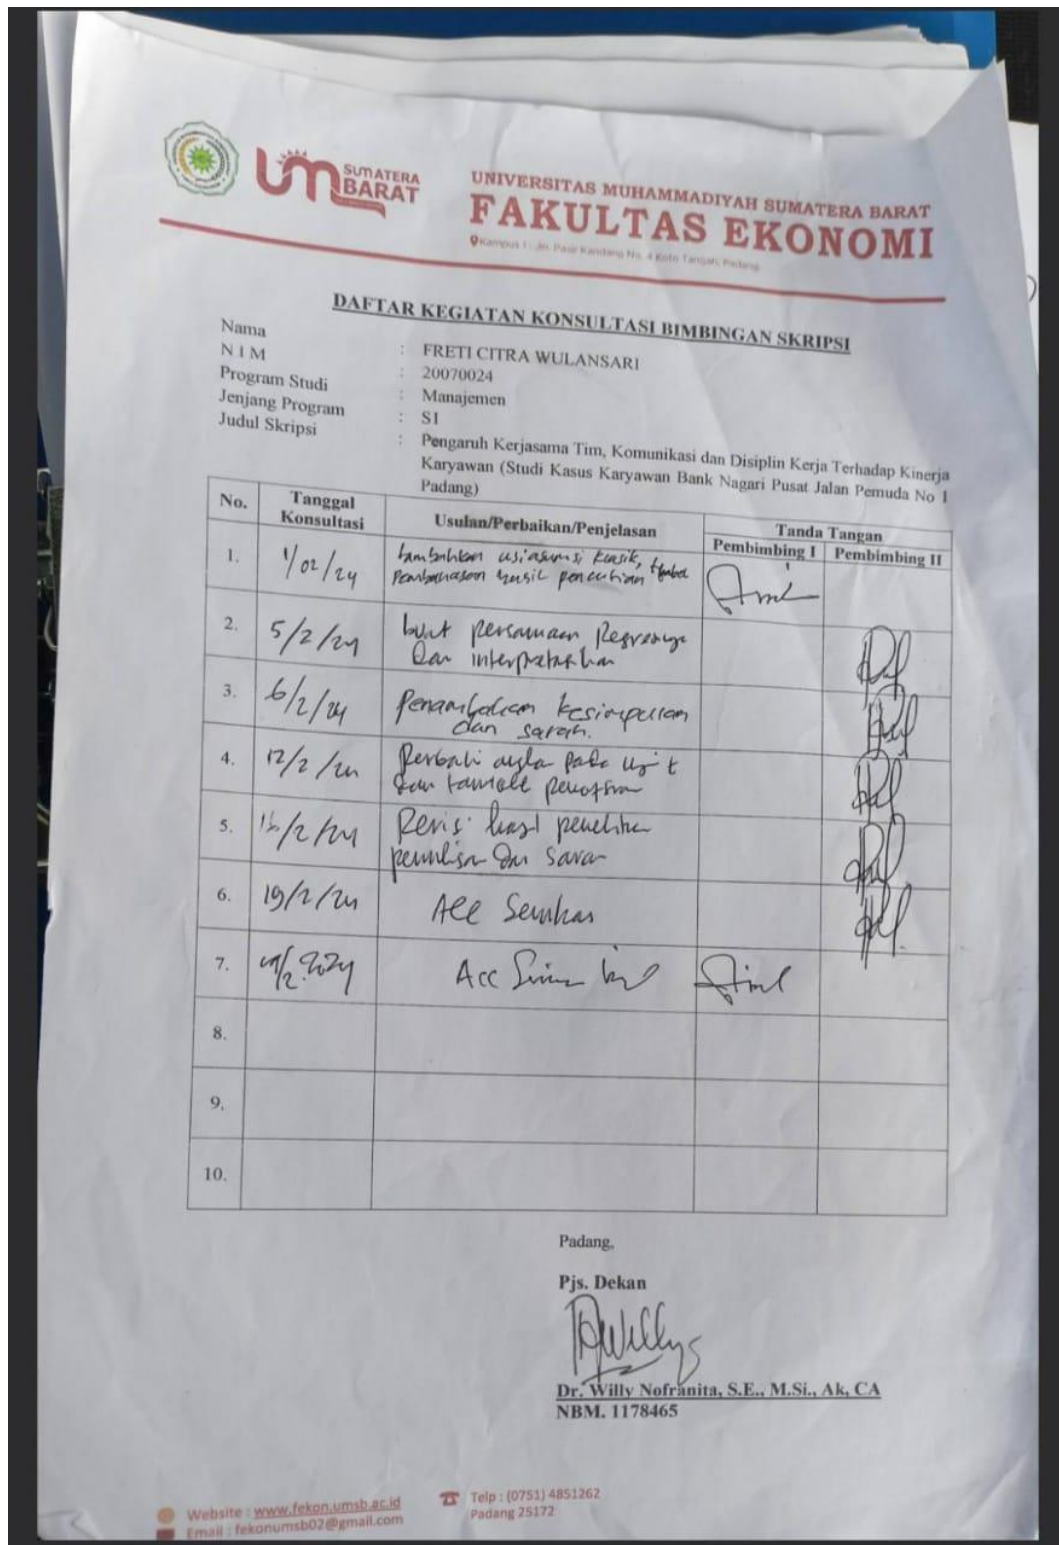 UM SUMATERA BARAT
UNIVERSITAS MUHAMMADIYAH SUMATERA BARAT
FAKULTAS EKONOMI
Kampus 1 : Jln. Pasir Kandang No. 4 Koto Tangah, Padang
DAFTAR KEGIATAN KONSULTASI BIMBINGAN SKRIPSI
Nama : FRETI CITRA WULANSARI
N I M : 20070024
Program Studi : Manajemen
Jenjang Program : S1
Judul Skripsi : Pengaruh Kerjasama Tim, Komunikasi dan Disiplin Kerja Terhadap Kinerja
Karyawan (Studi Kasus Karyawan Bank Nagari Pusat Jalan Pemuda No 1
Padang)
No. Tanggal Konsultasi Usulan/Perbaikan/Penjelasan Tanda Tangan
Pembimbing I Pembimbing II
1. 1/02/24 tambahkan klasik, tabel
hasil penelitian
2. 5/2/24 buat persamaan
dan interpretasikan
3. 6/2/24 Penambahan kesimpulan
dan saran.
4. 12/2/24 pada uji t
dan
5. /2/24 Revisi hasil penelitian
penulisan dan saran
6. 19/2/24 Acc Semhas
7. /2.2024 Acc
8.
9.
10.
Padang,
Pjs. Dekan
Dr. Willy Nofranita, S.E., M.Si., Ak, CA
NBM. 1178465
Website : www.fekon.umsb.ac.id
Email : fekonumsb02@gmail.com
Telp : (0751) 4851262
Padang 25172